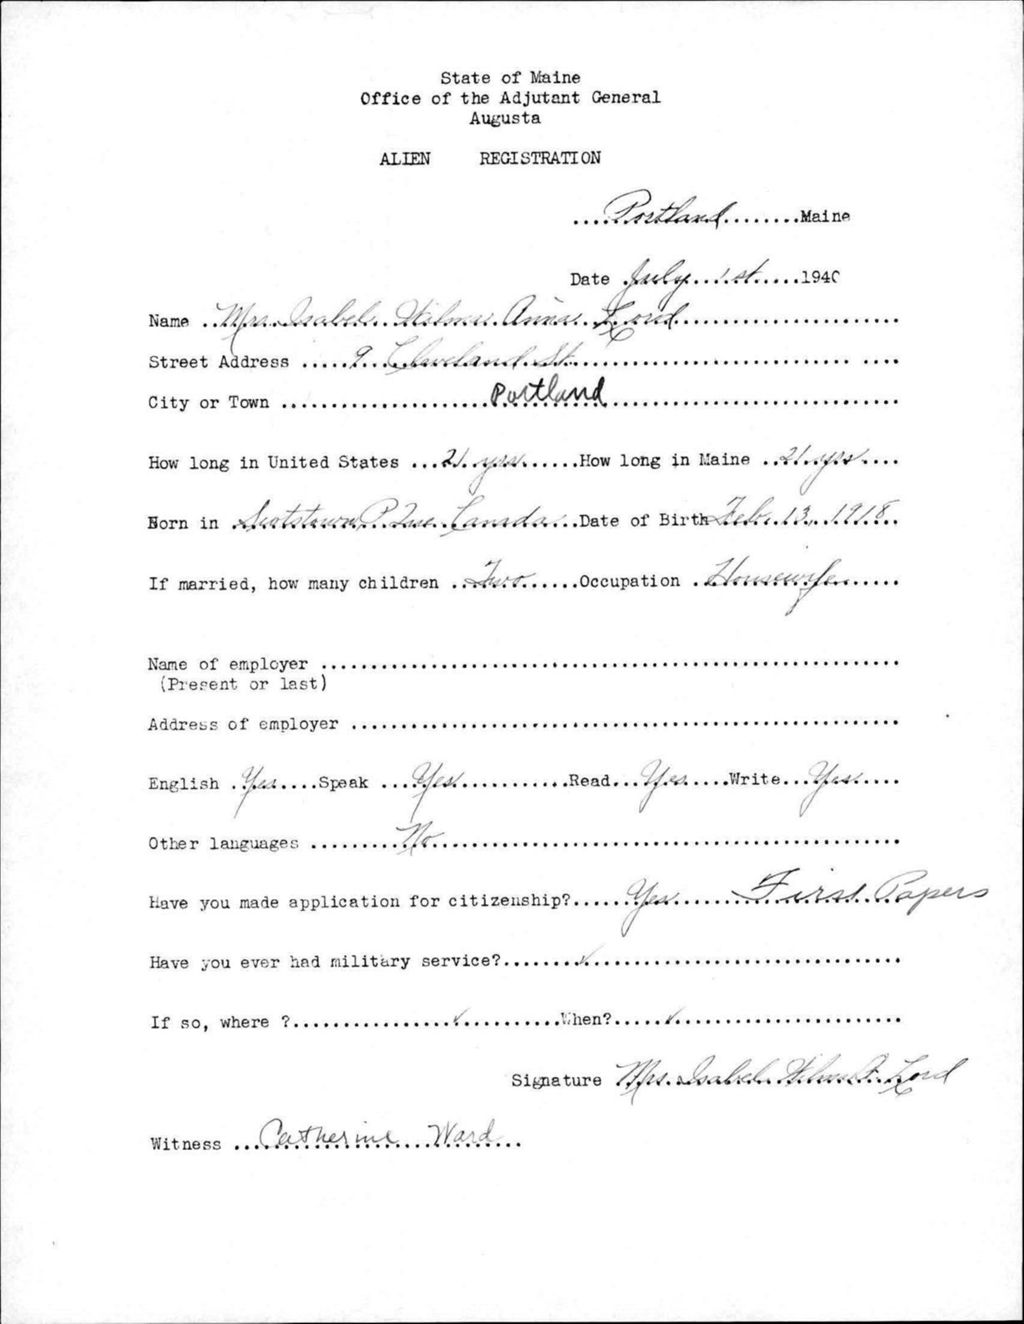 State of Maine
Office of the Adjutant General
Augusta
ALIEN REGISTRATION
....Portland........Maine
Date July 1st.....1940
Name ..Mrs. Isabel Wilma Anna Lord......................
Street Address .....9 Cleveland St............................... ....
City or Town ....................Portland............................
How long in United States ...21 yrs......How long in Maine ..21 yrs....
Born in .Scotstown, P. Que. Canada...Date of Birth Feb. 13, 1918..
If married, how many children ..Two......Occupation .Housewife.....
Name of employer ........................................................
(Present or last)
Address of employer .....................................................
English .Yes....Speak ...Yes...........Read...Yes....Write...Yes....
Other languages .........No.............................................
Have you made application for citizenship?......Yes.......First Papers
Have you ever had military service?........✓..............................
If so, where ?................✓..........When?.....✓......................
Signature Mrs. Isabel Wilma A. Lord
Witness ...Catherine Ward...